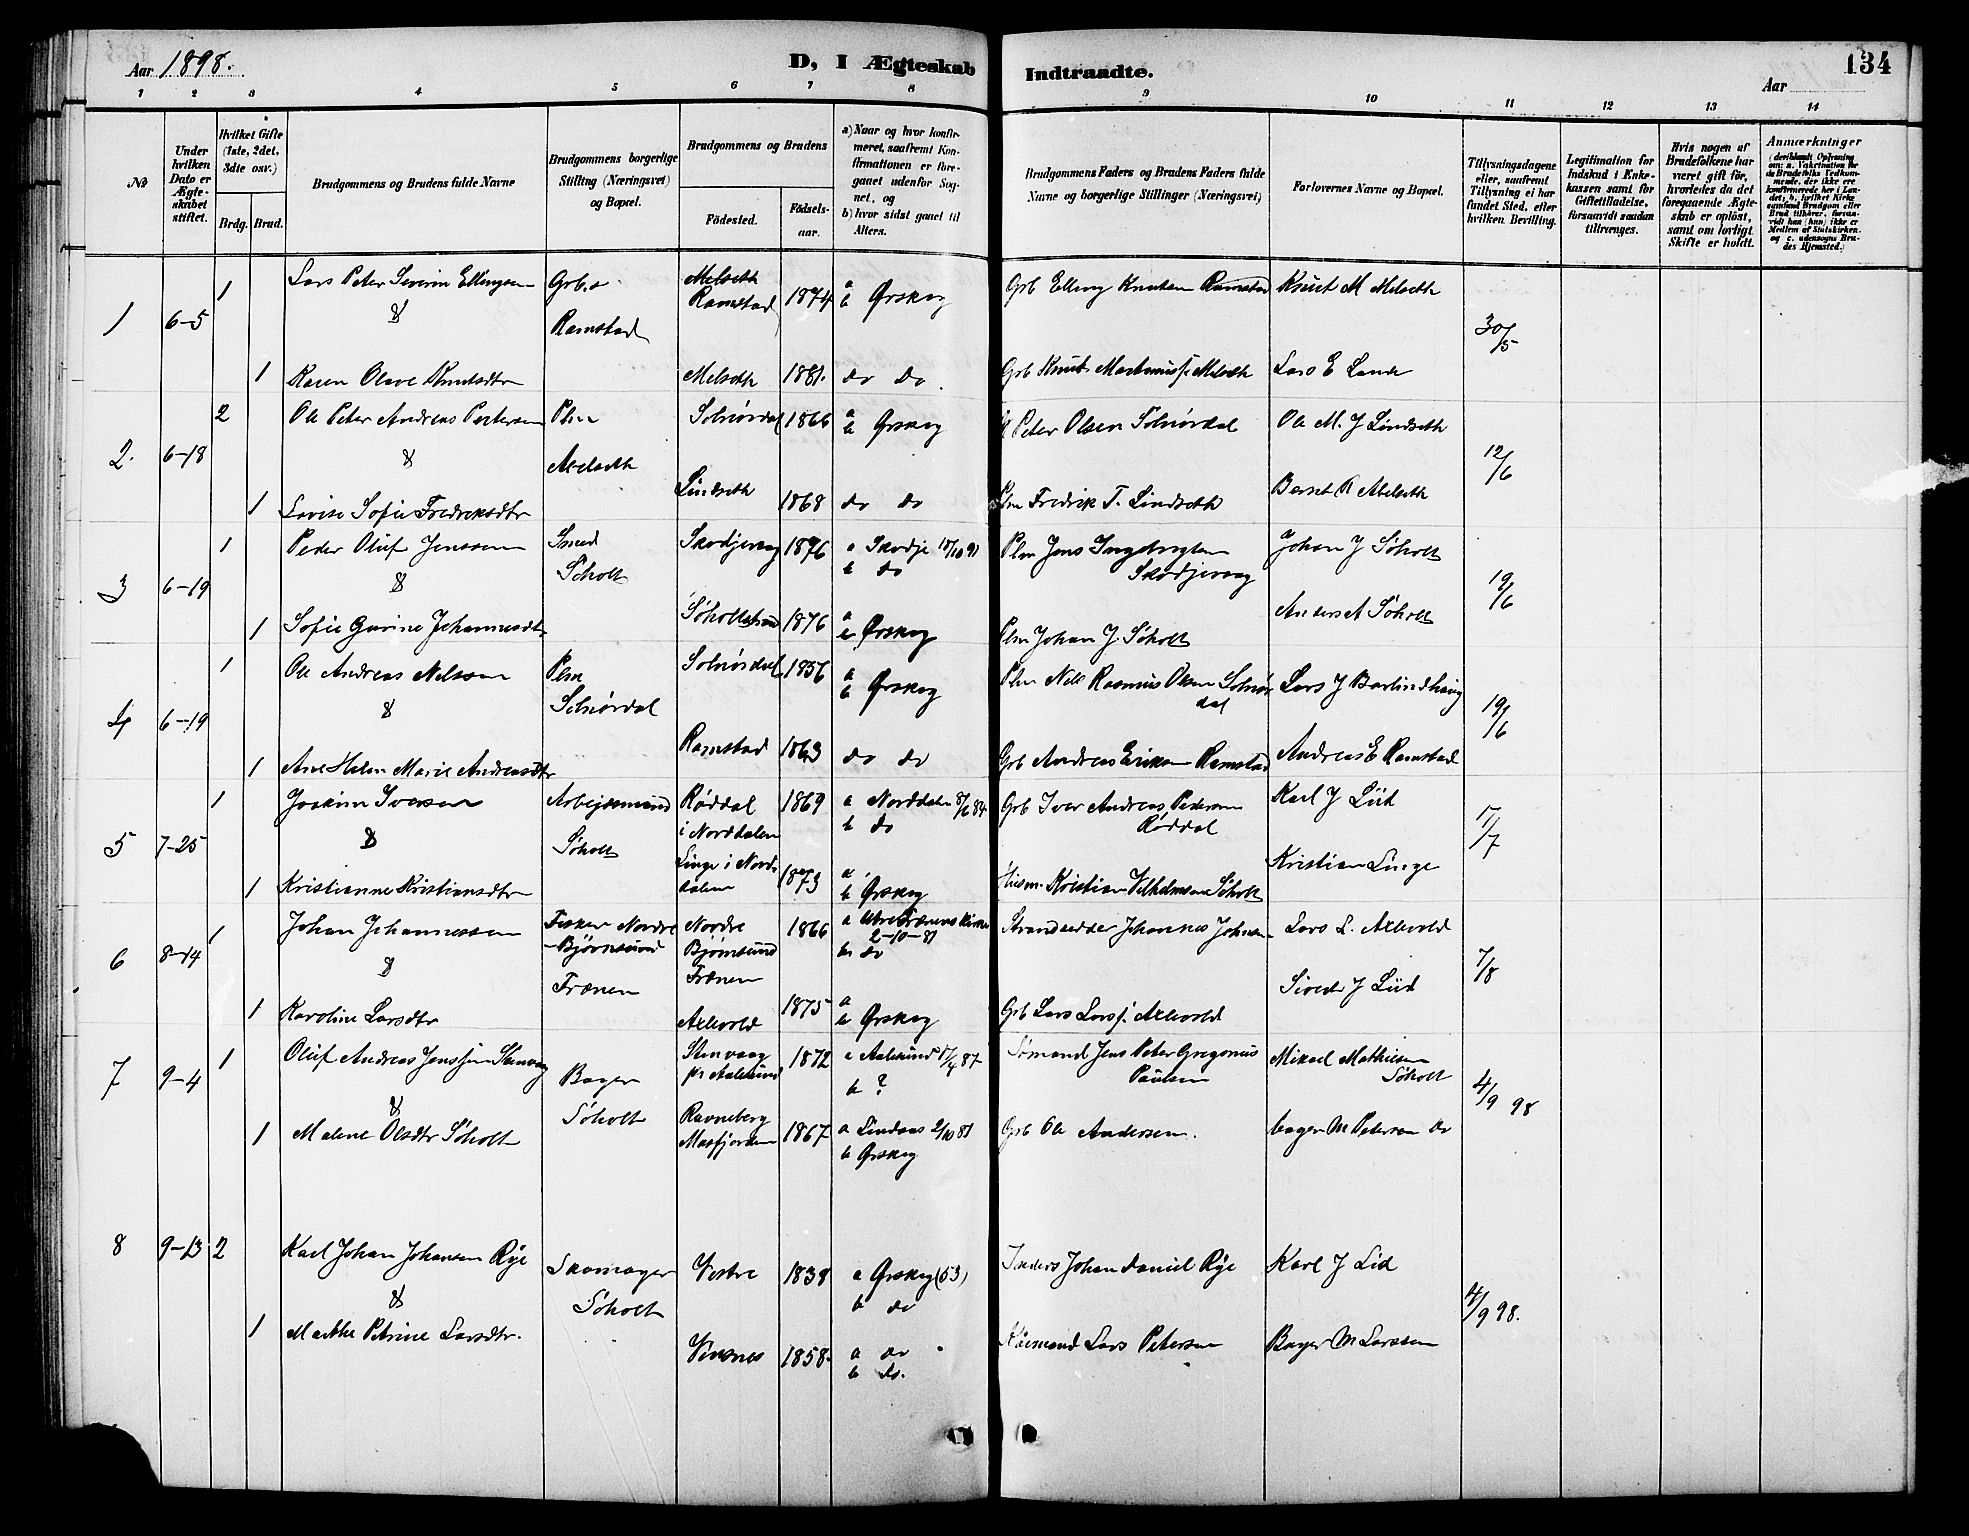 Aar 1898.
D, I Ægteskab
Indtraadte.
Aar
134
1 2 3 4 5 6 7 8
9 10 11 12 13 14
№
Under hvilken Dato er Ægteskabet stiftet.
Hvilket Gifte (1ste, 2det, 3dte osv.)
Brdg. Brud.
Brudgommens og Brudens fulde Navne
Brudgommens borgerlige Stilling (Næringsvei) og Bopæl.
Brudgommens og Brudens
Fødested.
Fødselsaar.
a) Naar og hvor konfirmeret, saafremt Konfirmationen er foregaaet udenfor Sognet, og
b) hvor sidst gaaet til Alters.
Brudgommens Faders og Brudens Faders fulde Navne og borgerlige Stillinger (Næringsvei)
Forlovernes Navne og Bopæl.
Tillysningsdagene eller, saafremt Tillysning ei har fundet Sted, efter hvilken Bevilling.
Legitimation for Indskud i Enkekassen samt for Giftetilladelse, forsaavidt saadan tiltrænges.
Hvis nogen af Brudefolkene har været gift før, hvorledes da det foregaaende Ægteskab er opløst, samt om lovligt Skifte er holdt.
Anmærkninger
1 6-5 1 Lars Peter Severin Ellingsen Grb.s Ramstad Melseth Ramstad 1874 a b Ørskog Grb Elling Knutsen Ramstad Knut M Melseth 30/5
&
1 Karen Olave Knutsdtr Melseth 1881. do do. Grb Knut Martinus s. Melseth Lars E Lande
2. 6-18 2 Ole Peter Andreas Petersen Plm Abelseth Solnørdal 1866 a b Ørskog Peter Olsen Solnørdal Ole M. J Lindseth 12/6
&
1 Lovise Sofie Fredriksdtr Lindseth 1868 do do Plm Fredrik T. Lindseth Bernt R Abelseth
3 6-19 1 Peder Oluf Jenssen Smed Søholt Skodjevaag 1876 a Skodje 18/10 91 b do Plm Jens Skodjevaag Johan J Søholt 19/6
&
1 Sofie Gurine Johannesdtr Søholtstrand 1876 a b Ørskog Plm Johan J. Søholt Anders A Søholt
4 6-19 1 Ole Andreas Nelssen Plm Solnørdal Solnørdal 1856 a b Ørskog Plm Nils Rasmus Olsen Solnørdal Lars J Barlindhaug 19/6
&
1 Ane Helen Marie Andreasdtr Ramstad 1863 do do Grb Andreas Eriksen Ramstad Andreas E Ramstad
5 7-25 1 Joakim Iversen Arbejdsmand Søholt Røddal i Norddalen 1869 a Norddalen 8/6 84 b do Grb Iver Andreas Pedersen Røddal Karl J Lid 17/7
&
1 Kristianne Kristiansdtr Linge i Norddalen 1873 a b Ørskog Husm. Kristian Vilhelmsen Søholt Kristian Linge
6 8-14 1 Johan Johannessen Fisker Nordre Bjørnsund Frænen Nordre Bjørnsund Frænen 1866 a Frænens Kirke 2-10-81 b do Strandsedder Johannes Johnsen Lars L. Axlevold 7/8
&
1 Karoline Larsdtr Axlevold 1875 a b Ørskog Grb Lars Lars s. Axlevold Sivert J Lid
7 9-4 1 Oluf Andreas Jenssen Stenvaag Bager Søholt Stenvaag pr Aalesund 1872 a Aalesund 17/4 87 b ? Sømand Jens Peter Gregorius Paulsen Mikael Mathiesen Søholt 4/9 98
&
1 Malene Olsdtr Søholt Ravneberg Masfjorden 1867 a Lindaas 2/10 81 b Ørskog Grb Ole Andersen. bager M Petersen do
8 9-13 2 Karl Johan Johansen Rye Skomager Søholt Vestre 1838 a Ørskog (53) b do Johan Daniel Rye Karl J Lid 4/9 98.
&
1 Marthe Petrine Larsdtr. Viksnes 1858. a do b do. Lars Petersen Bager M Larssen